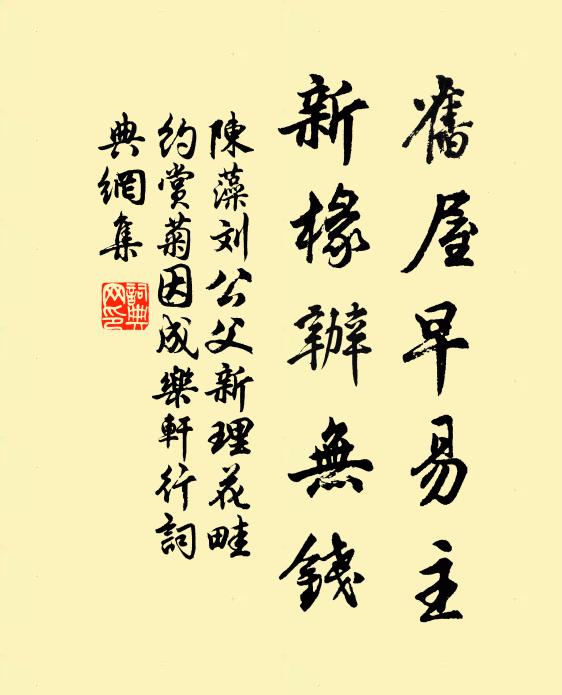 舊屋早易主
新椽辦無錢
陳藻刘公父新理花畦
約賞菊因成樂軒行詞
典網集
詞典網印